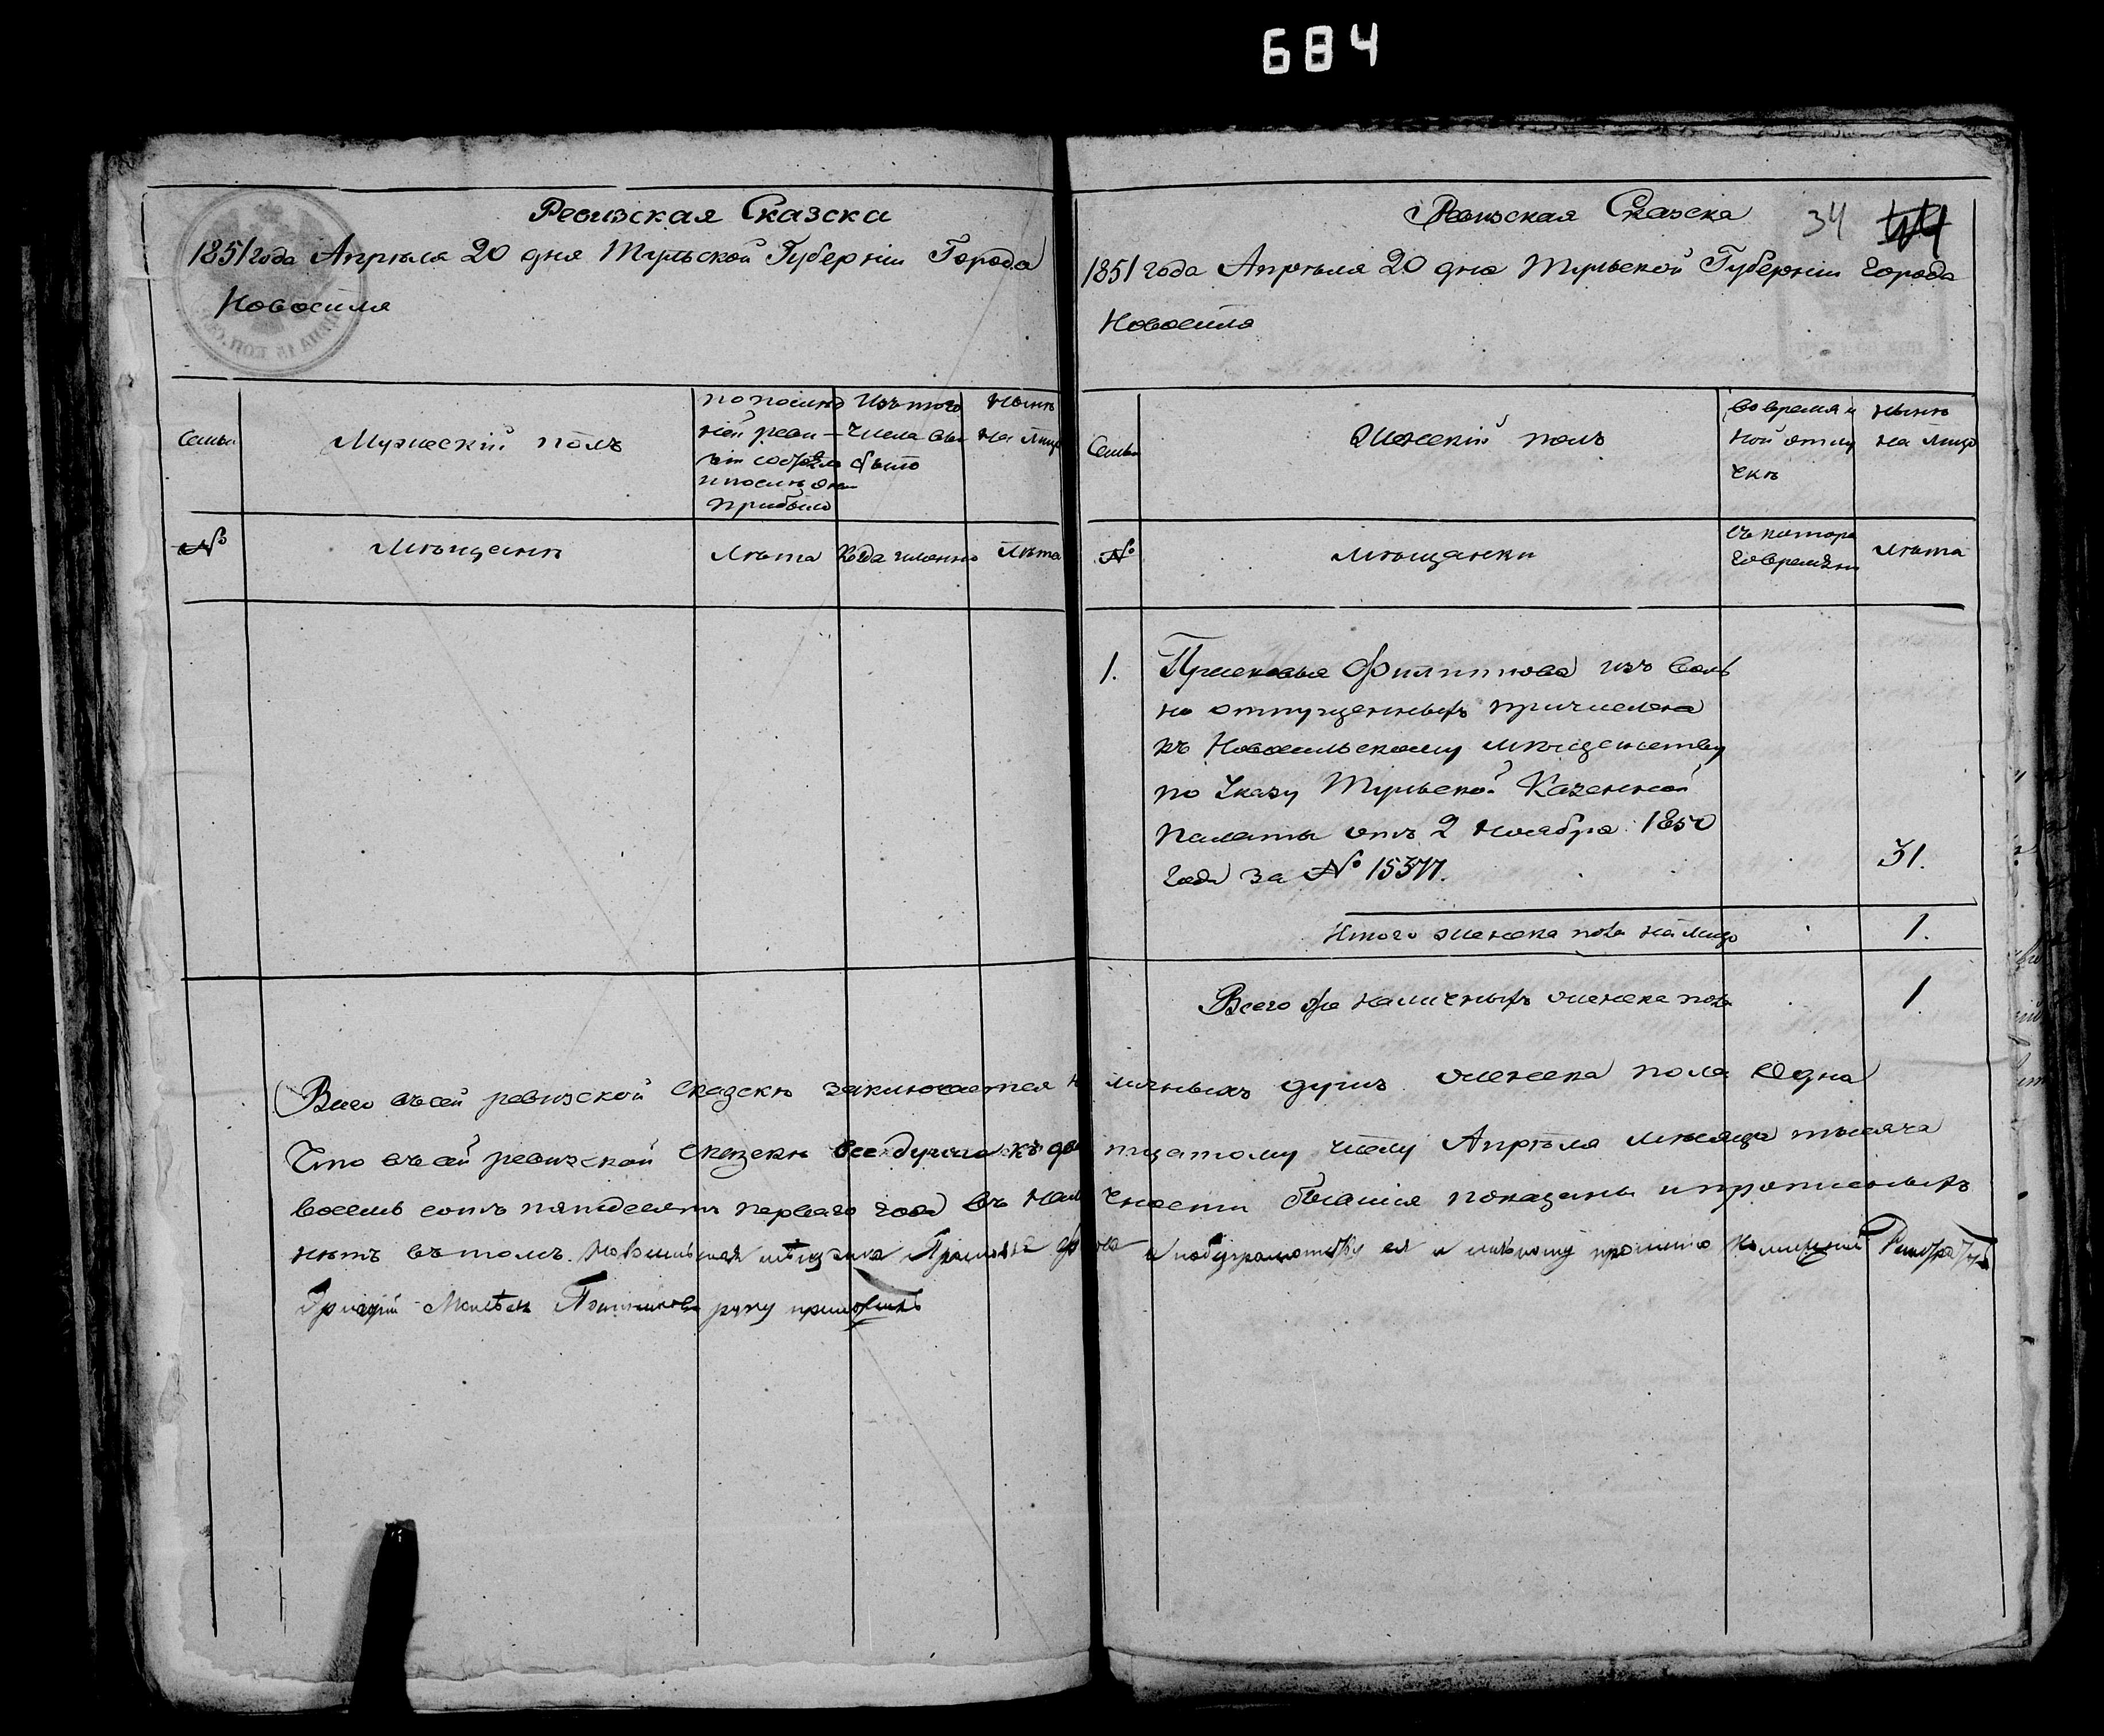 684
Ревизская Сказска
1851 года Апрѣля 20 дня Тульской Губерніи Города
Новосиля
Семьи
Мужескій полъ
по послѣд
ней реви-
зіи состояло
и послѣ оной
прибыло
Изъ того
числа вы
было
Нынѣ
на лицо
№
Мѣщане
Лѣта
Когда именно
Лѣта
Ревизская Сказска
34
1851 года Апрѣля 20 дня Тульской Губерніи города
Новосиля
Семьи
Женскій полъ
во времян
ной отлу
чкѣ
Нынѣ
на лицо
№
Мѣщанки
съ котора
го времяни
Лѣта
1. Прасковья Филиппова изъ воль
но отпущенныхъ причислена
къ Новосильскому мѣщенству
по Указу Тульской Казенной
Палаты отъ 2 Ноября 1850
года за № 15377. 31.
Итого женска пола на лицо 1.
Всего же наличныхъ женска пола 1
Всего въ сей ревизской сказскѣ заключается на личныхъ душъ женска пола одна
Что въ сей ревизской сказскѣ все души къ два тцатому числу Апрѣля мѣсяца тысяча
восемь сотъ пятдесятъ перваго года въ нали чности бывшія показаны и прописныхъ
нѣтъ въ томъ Новосильская мѣщанка Прасковья а по безграмотству ея и личному прошенію
Григорій руку приложилъ